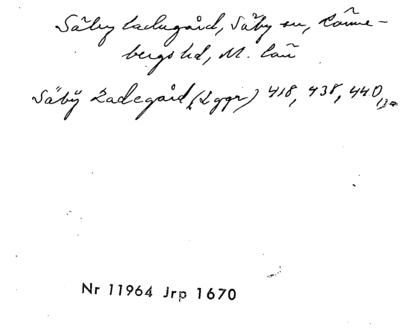 Säby ladugård, Säby sn, Rönne-
bergs hd, M. län
Säbÿ Ladegård (2 ggr) 418, 438, 440,
Nr 11964 Jrp 1670